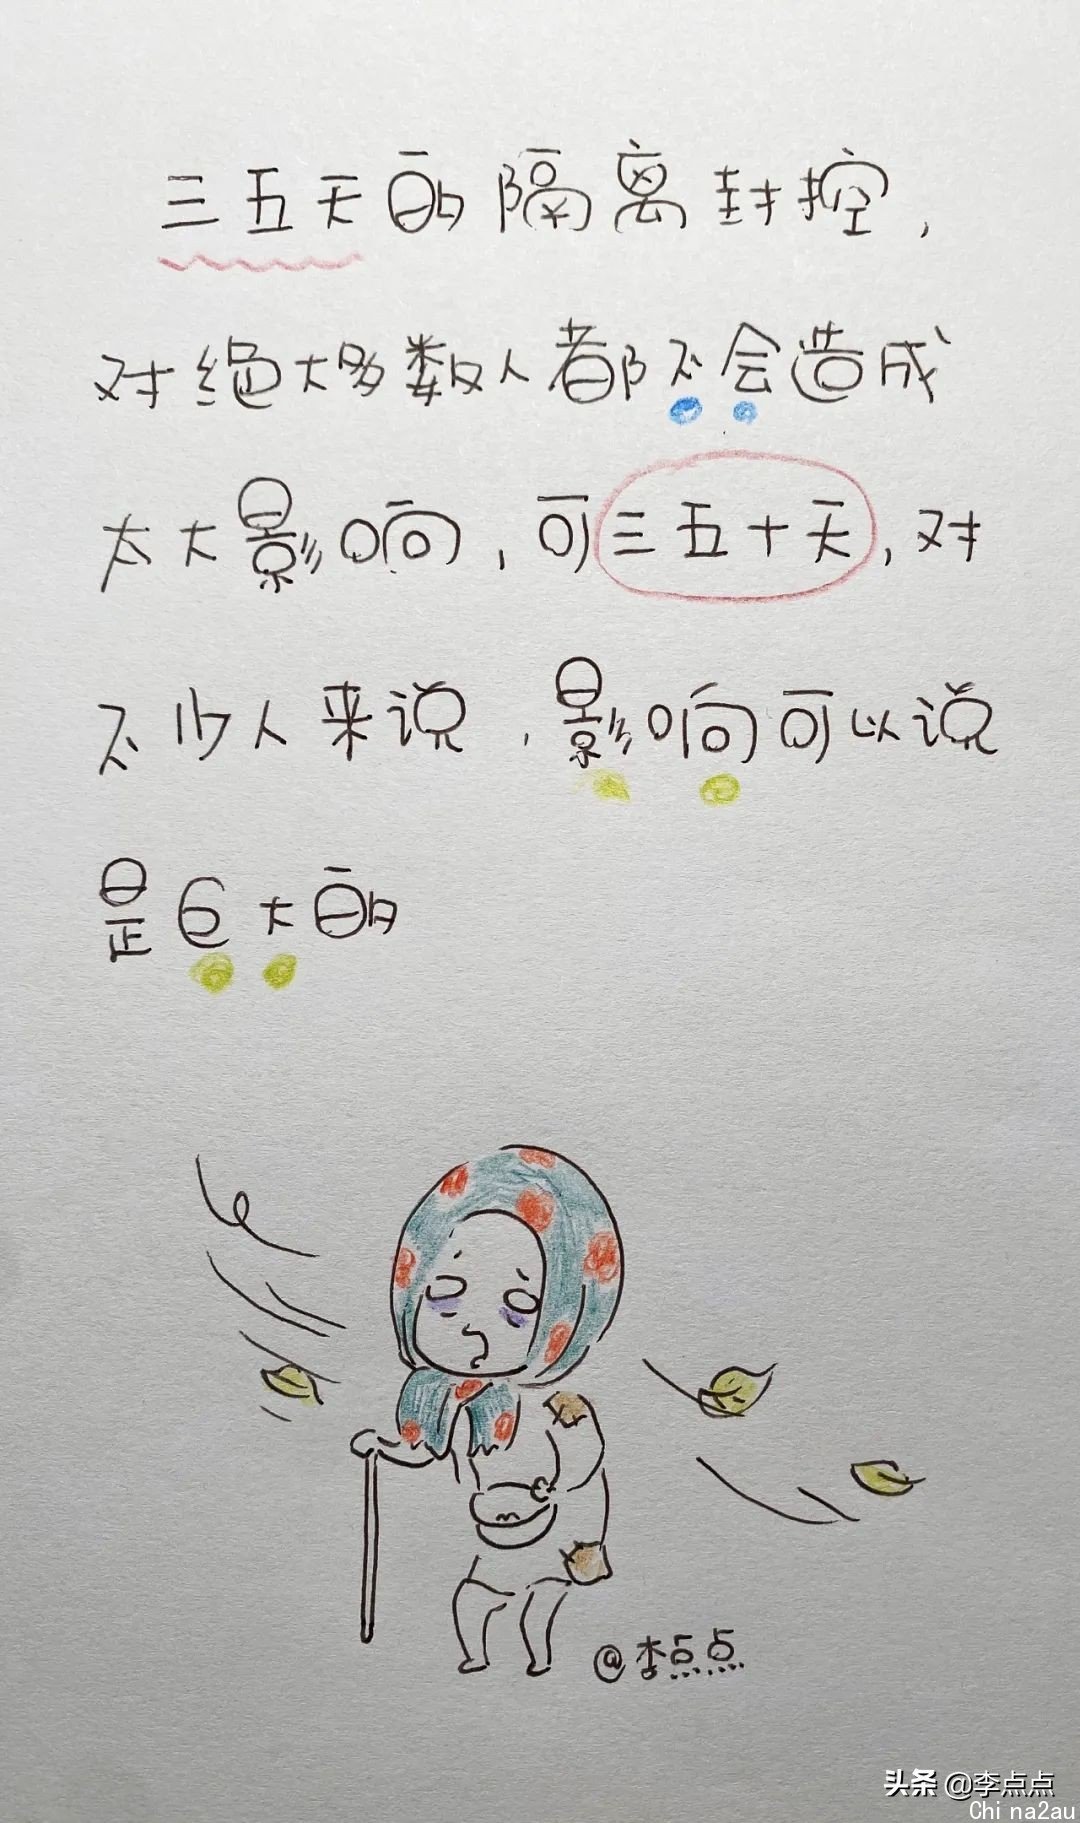 三五天的隔离封控,
对绝大多数人都不会造成
太大影响,可三五十天,对
不少人来说,影响可以说
是巨大的
@李点点
头条 @李点点
China2au